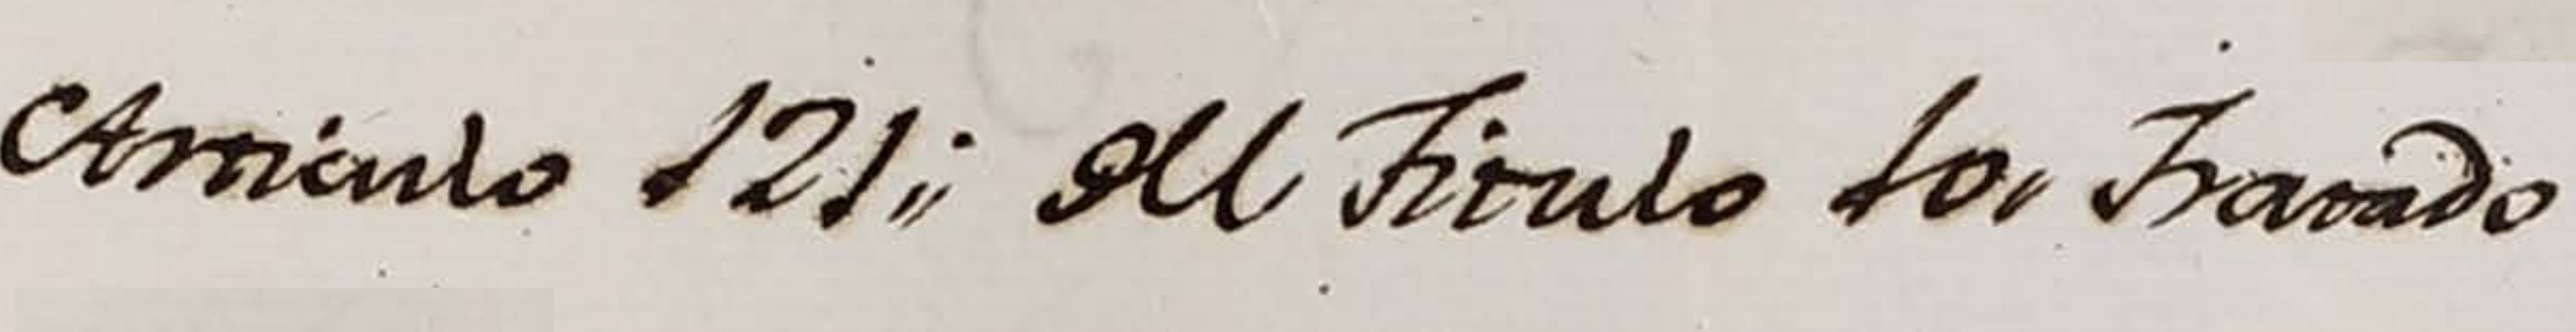 Articulo 121,, del Titulo 10, Tratado